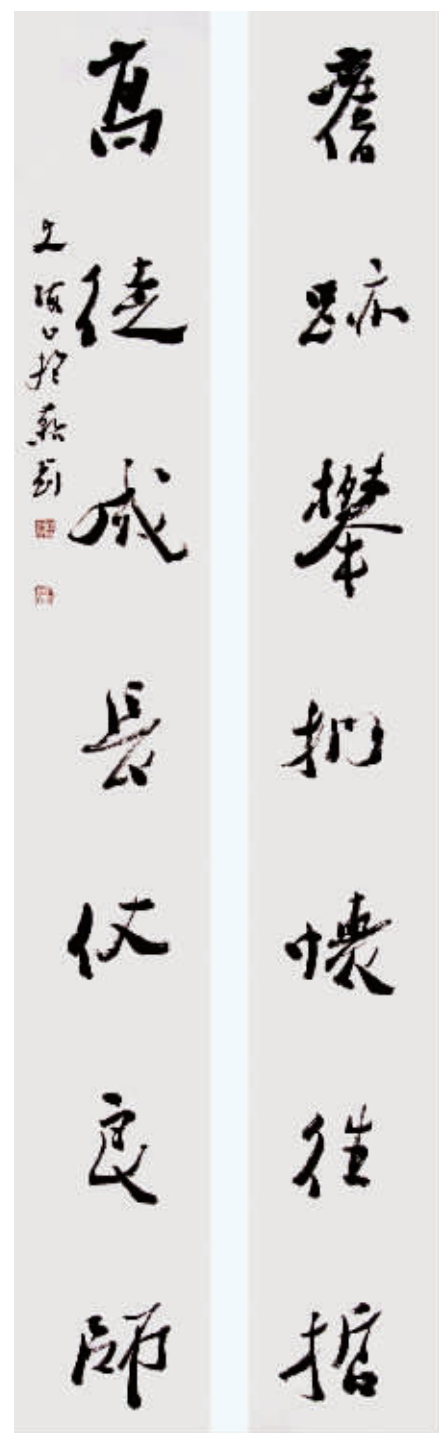 舊跡攀捫懷往哲
高徒成長仗良師